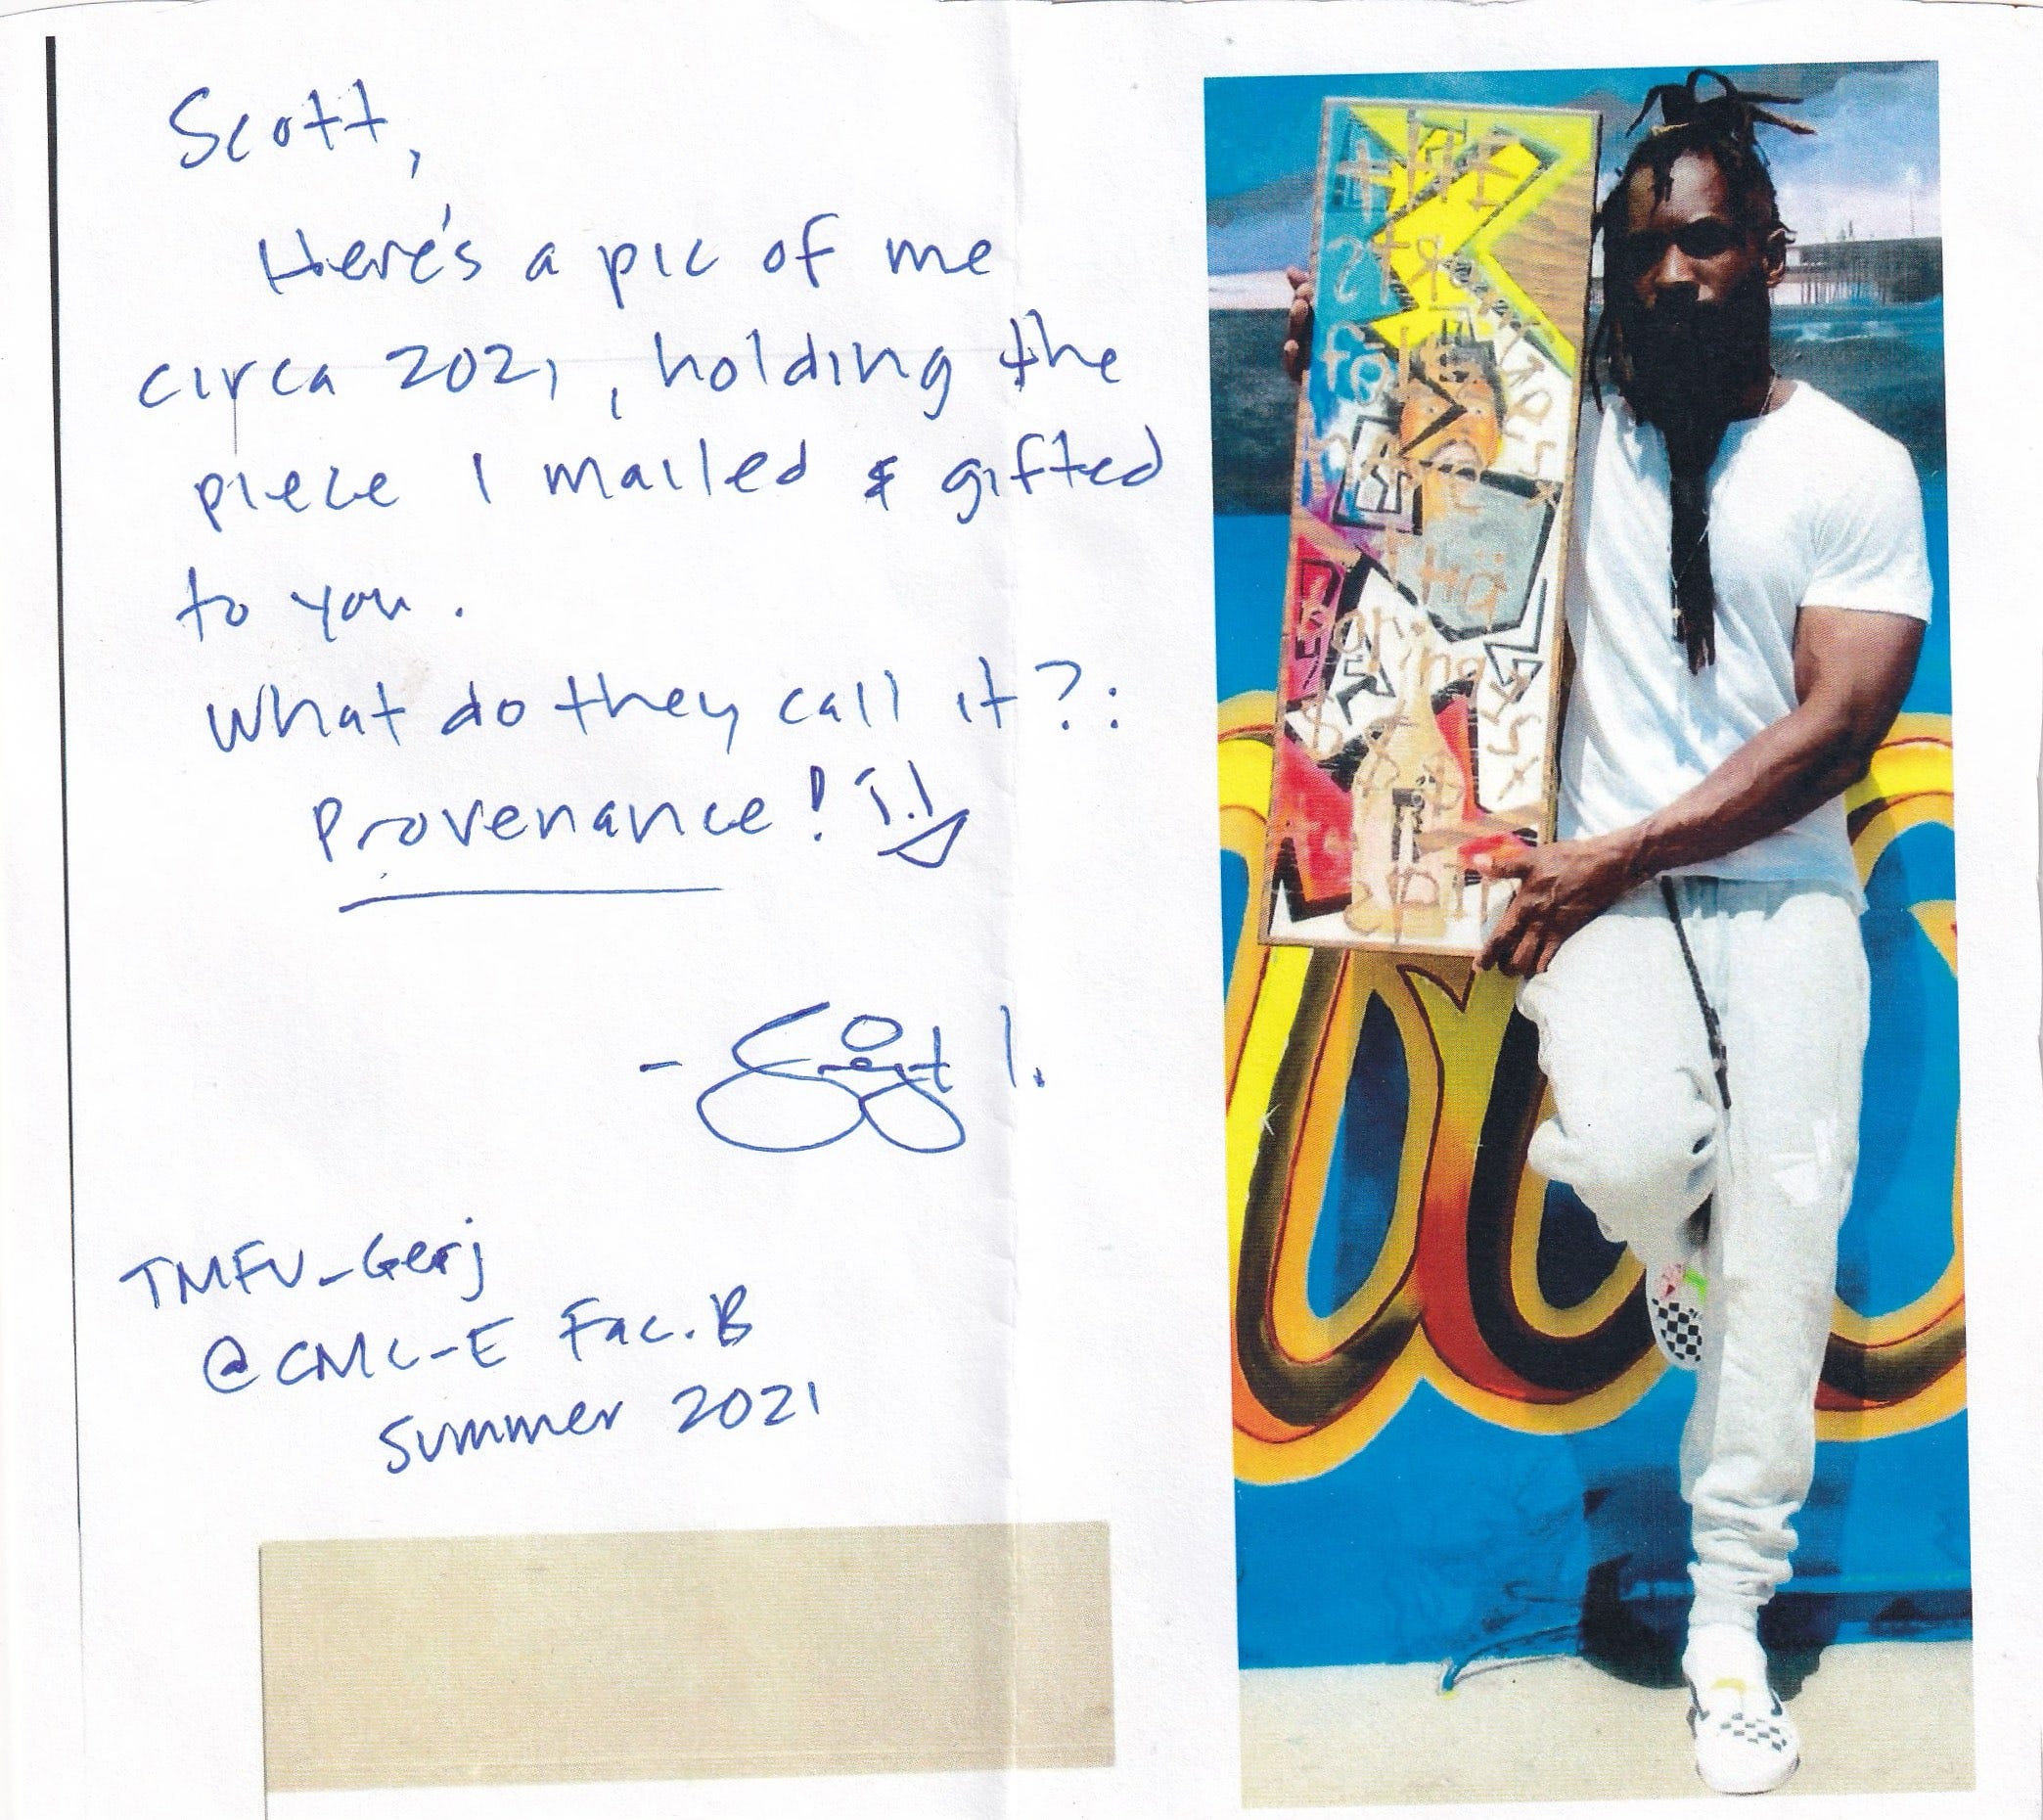 Scott,
Here's a pic of me
circa 2021, holding the
piece I mailed & gifted
to you.
What do they call it?:
Provenance!
TMFU_Gerj
@CMC-E Fac. B
Summer 2021
THE